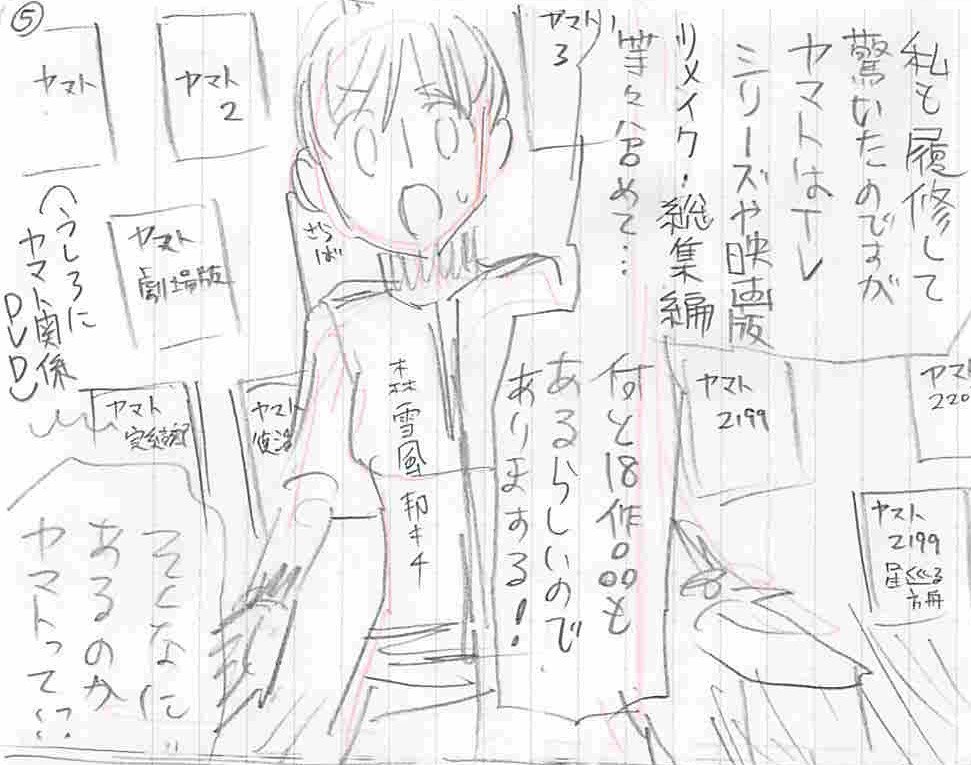 ⑤
私も履修して
驚いたのですが
ヤマトはTV
シリーズや映画版
リメイク・総集編
等々含めて…
何と18作品も
あるらしいので
ありまする!
そんなに
あるのか
ヤマトって
(うしろに
ヤマト関係
DVD)
ヤマト
3
ヤマト
2
ヤマト
ヤマト
劇場版
さらば
ヤマト
完結編
ヤマト
復活
ヤマト
2199
ヤマト
220
ヤマト
2199
星巡る
方舟
森雪風